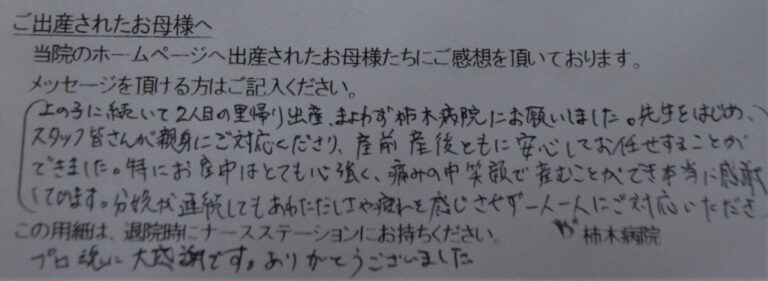 ご出産されたお母様へ
当院のホームページへ出産されたお母様たちにご感想を頂いております。
メッセージを頂ける方はご記入ください。
上の子に続いて2人目の里帰り出産、まよわず柿木病院にお願いしました。先生をはじめ、
スタッフ皆さんが親身にご対応くださり、産前産後ともに安心してお任せすることが
できました。特にお産中はとても心強く、痛みの中笑顔で産むことができ本当に感謝
してます。分娩が連続してもあわただしさや疲れを感じさせず一人一人にご対応いただき
この用紙は、退院時にナースステーションにお持ちください。 柿木病院
プロ魂に大感謝です。ありがとうございました